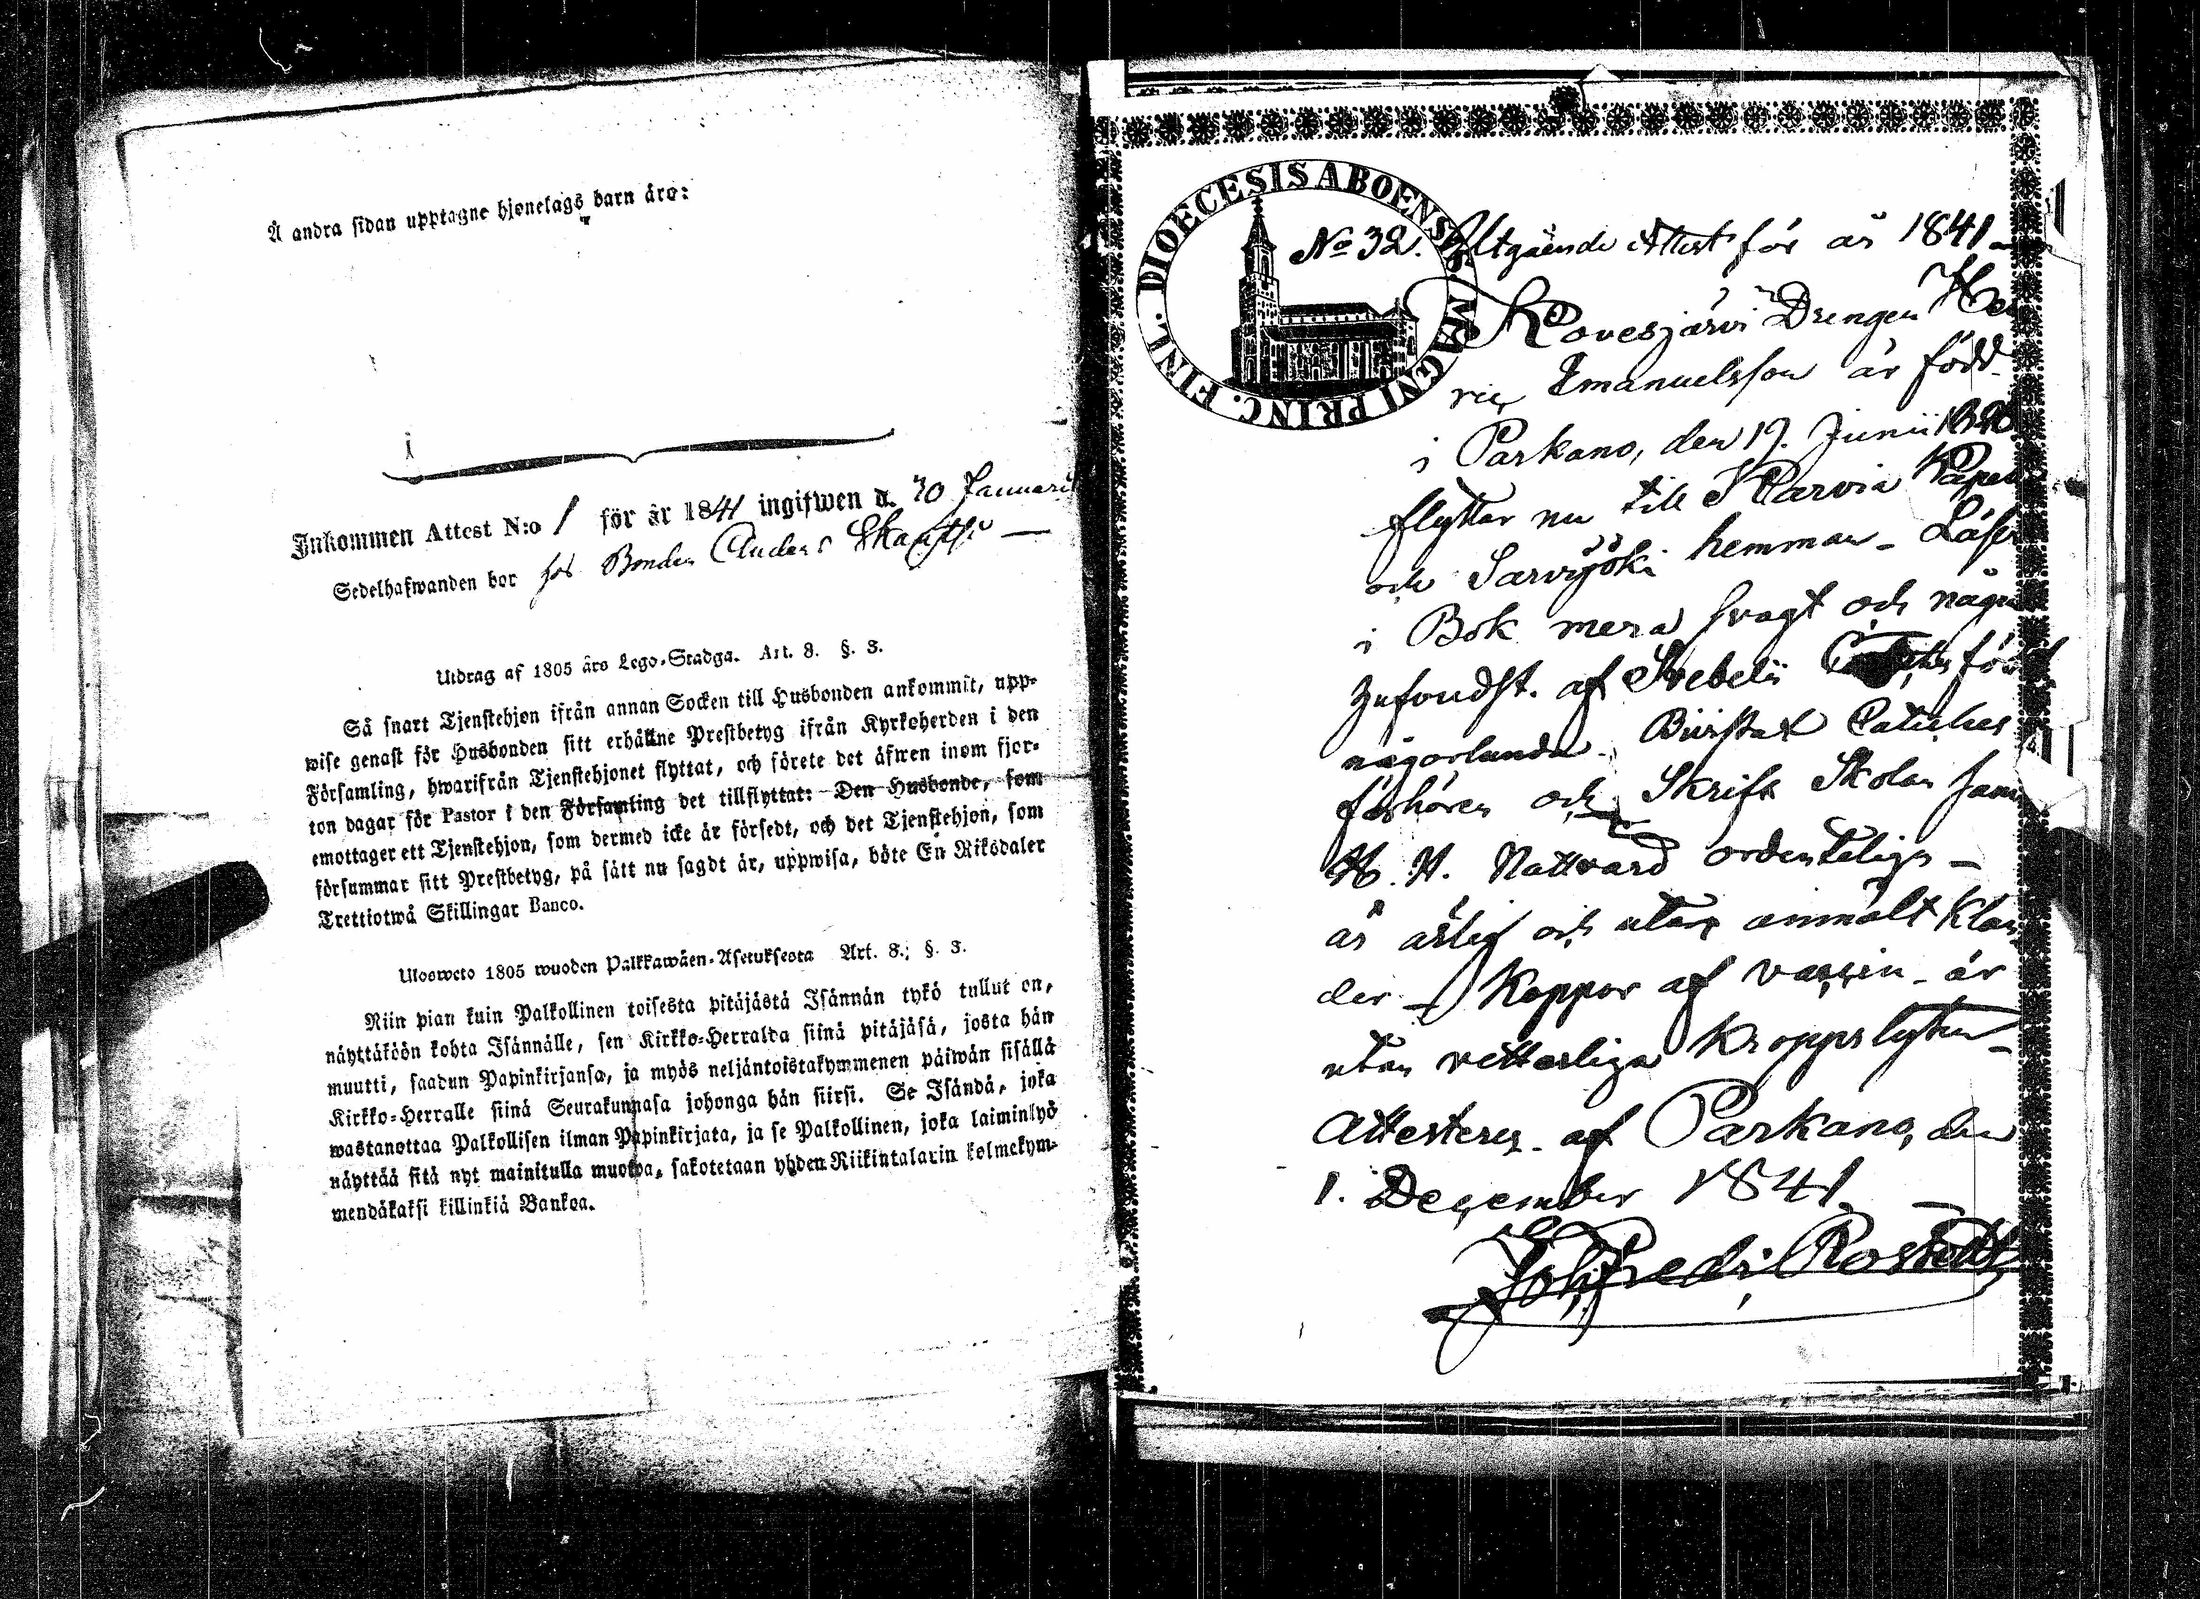 Å andra sidan upptagne hjonelags barn äro:
Inkommen Attest N:o 1 för år 1841 ingifwen d. 30 Januari
Sedelhafwanden bor hos Bonden Anders
Utdrag af 1805 års Lego-Stadga. Art. 8. §. 3.
Så snart Tjenstehjon ifrån annan Socken till Husbonden ankommit, upp-
wise genast för Husbonden sitt erhållne Prestbetyg ifrån Kyrkoherden i den
Församling, hwarifrån Tjenstehjonet flyttat, och förete det äfwen inom fjor-
ton dagar för Pastor i den Församling det tillflyttat: Den Husbonde, som
emottager ett Tjenstehjon, som dermed icke är försedt, och det Tjenstehjon, som
försummar sitt Prestbetyg, på sätt nu sagdt är, uppwisa, böte En Riksdaler
Trettiotwå Skillingar Banco.
Ulosweto 1805 wuoden Palkkawäen-Asetuksesta Art. 8.; §. 3.
Niin pian kuin Palkollinen toisesta pitäjästä Isännän tykö tullut on,
näyttäköön kohta Isännälle, sen Kirkko-Herralda siinä pitäjäsä, josta hän
muutti, saadun Papinkirjansa, ja myös neljäntoistakymmenen päiwän sisällä
Kirkko-Herralle siinä Seurakunnasa johonga hän siirsi. Se Isändä, joka
wastanottaa Palkollisen ilman Papinkirjata, ja se Palkollinen, joka laiminlyö
näyttää sitä nyt mainitulla muotoa, sakotetaan yhden Riikintalarin kolmekym-
mendäkaksi killinkiä Bankoa.
DIOECESIS ABOENSIS. MAGNI PRINC. FINL.
No 32. Utgående Attest för år 1841
Kovesjärvi Drengen Hen
ric Emanuelsson är född
i Parkano, den 19. Junii
flyttar nu till Karvia
och Sarvijöki hemman - Läser
i Bok mera svagt och någon
af Svebelii för
någorlunda. Biwistat Catichis
förhören och Skrift Skolan samt
H. H. Nattvard ordenteligen -
är ärlig och utan anmält Klan
der - Koppor af vaccin - är
utan vetterliga Kroppslyten -
Attesteres af Parkano, den
1. December 1841
Joh. Fredr. Rostedt